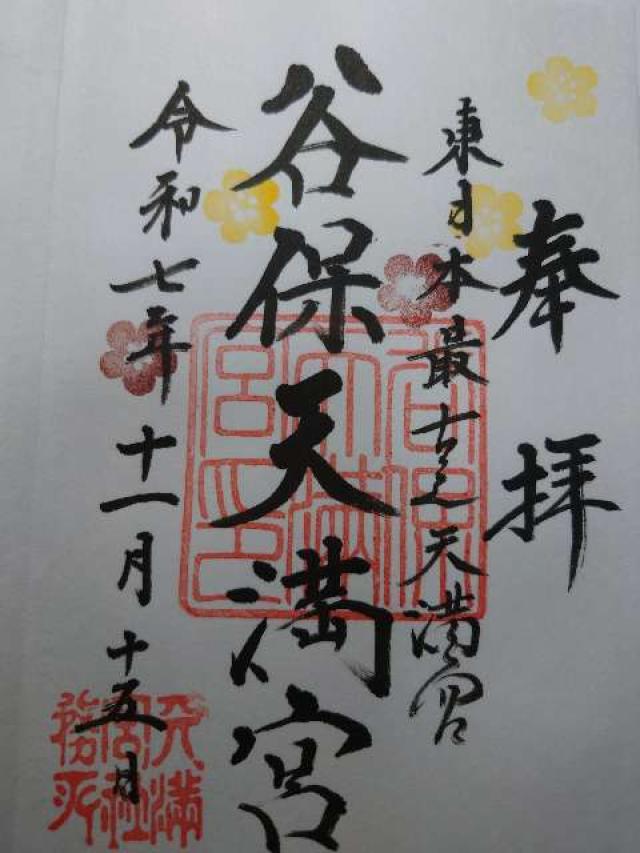 奉拝
東日本最古之天満宮
谷保天満宮
令和七年十一月十五日
谷保天満宮印
天満宮社務所